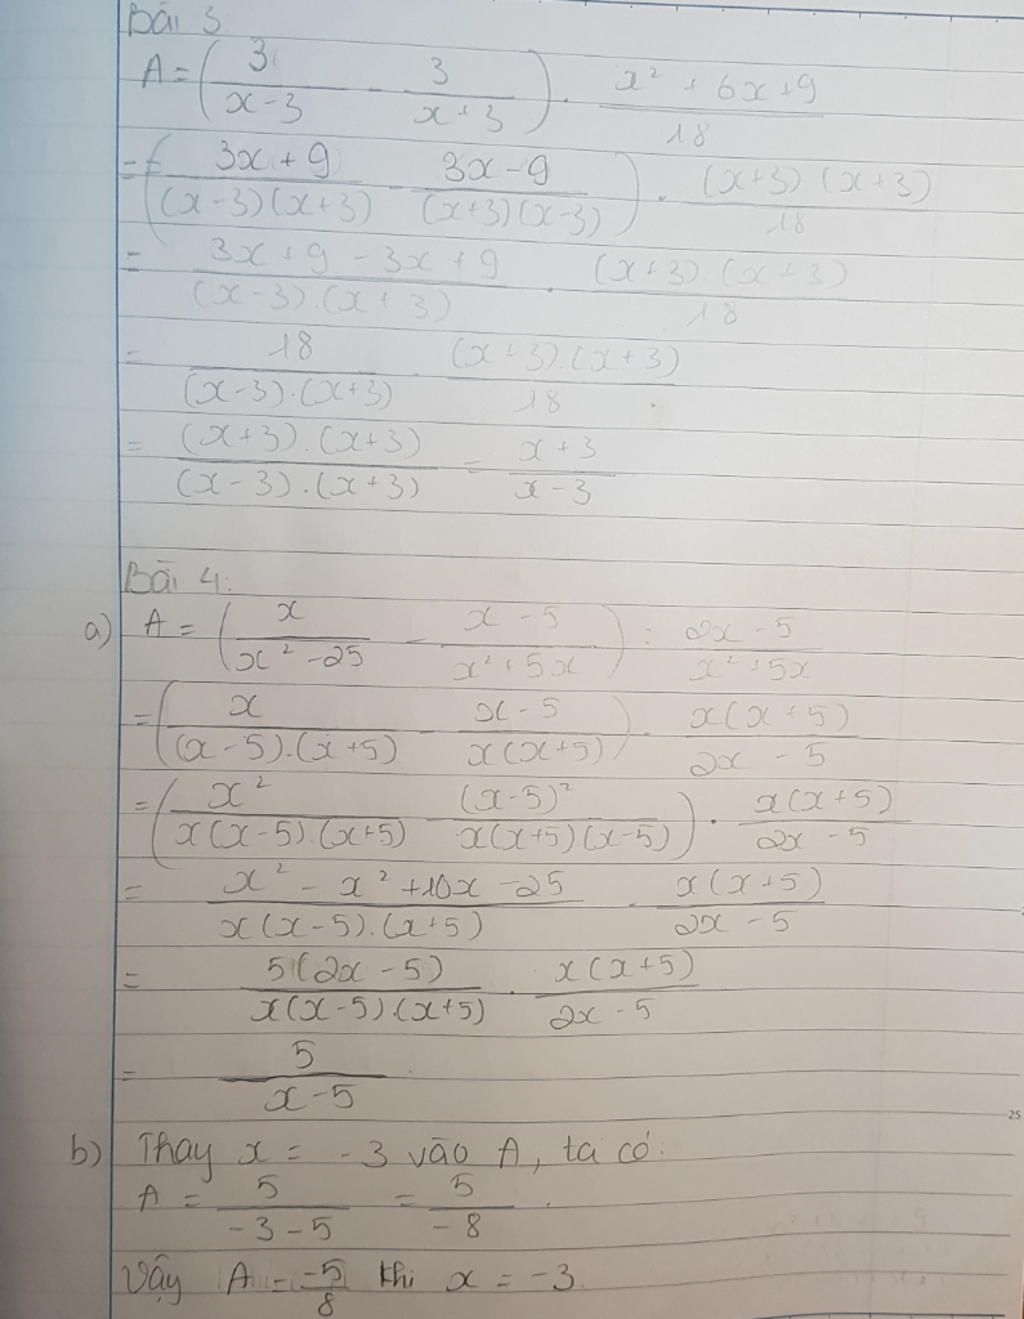 Bài 3.
A = (3/(x-3) - 3/(x+3)) . (x² + 6x + 9)/18
= ((3x + 9)/((x-3)(x+3)) - (3x - 9)/((x+3)(x-3))) . ((x+3)(x+3))/18
= (3x + 9 - 3x + 9)/((x-3).(x+3)) . ((x+3).(x+3))/18
= 18/((x-3).(x+3)) . ((x+3).(x+3))/18
= ((x+3).(x+3))/((x-3).(x+3)) = (x+3)/(x-3)
Bài 4:
a) A = (x/(x² - 25) - (x - 5)/(x² + 5x)) : (2x - 5)/(x² + 5x)
= (x/((x-5).(x+5)) - (x-5)/(x(x+5))) . (x(x+5))/(2x - 5)
= (x²/(x(x-5).(x+5)) - (x-5)²/(x(x+5)(x-5))) . (x(x+5))/(2x - 5)
= (x² - x² + 10x - 25)/(x(x-5).(x+5)) . (x(x+5))/(2x - 5)
= (5(2x - 5))/(x(x-5).(x+5)) . (x(x+5))/(2x - 5)
= 5/(x-5)
b) Thay x = -3 vào A, ta có:
A = 5/(-3-5) = 5/(-8) .
Vậy A = -5/8 khi x = -3.
25